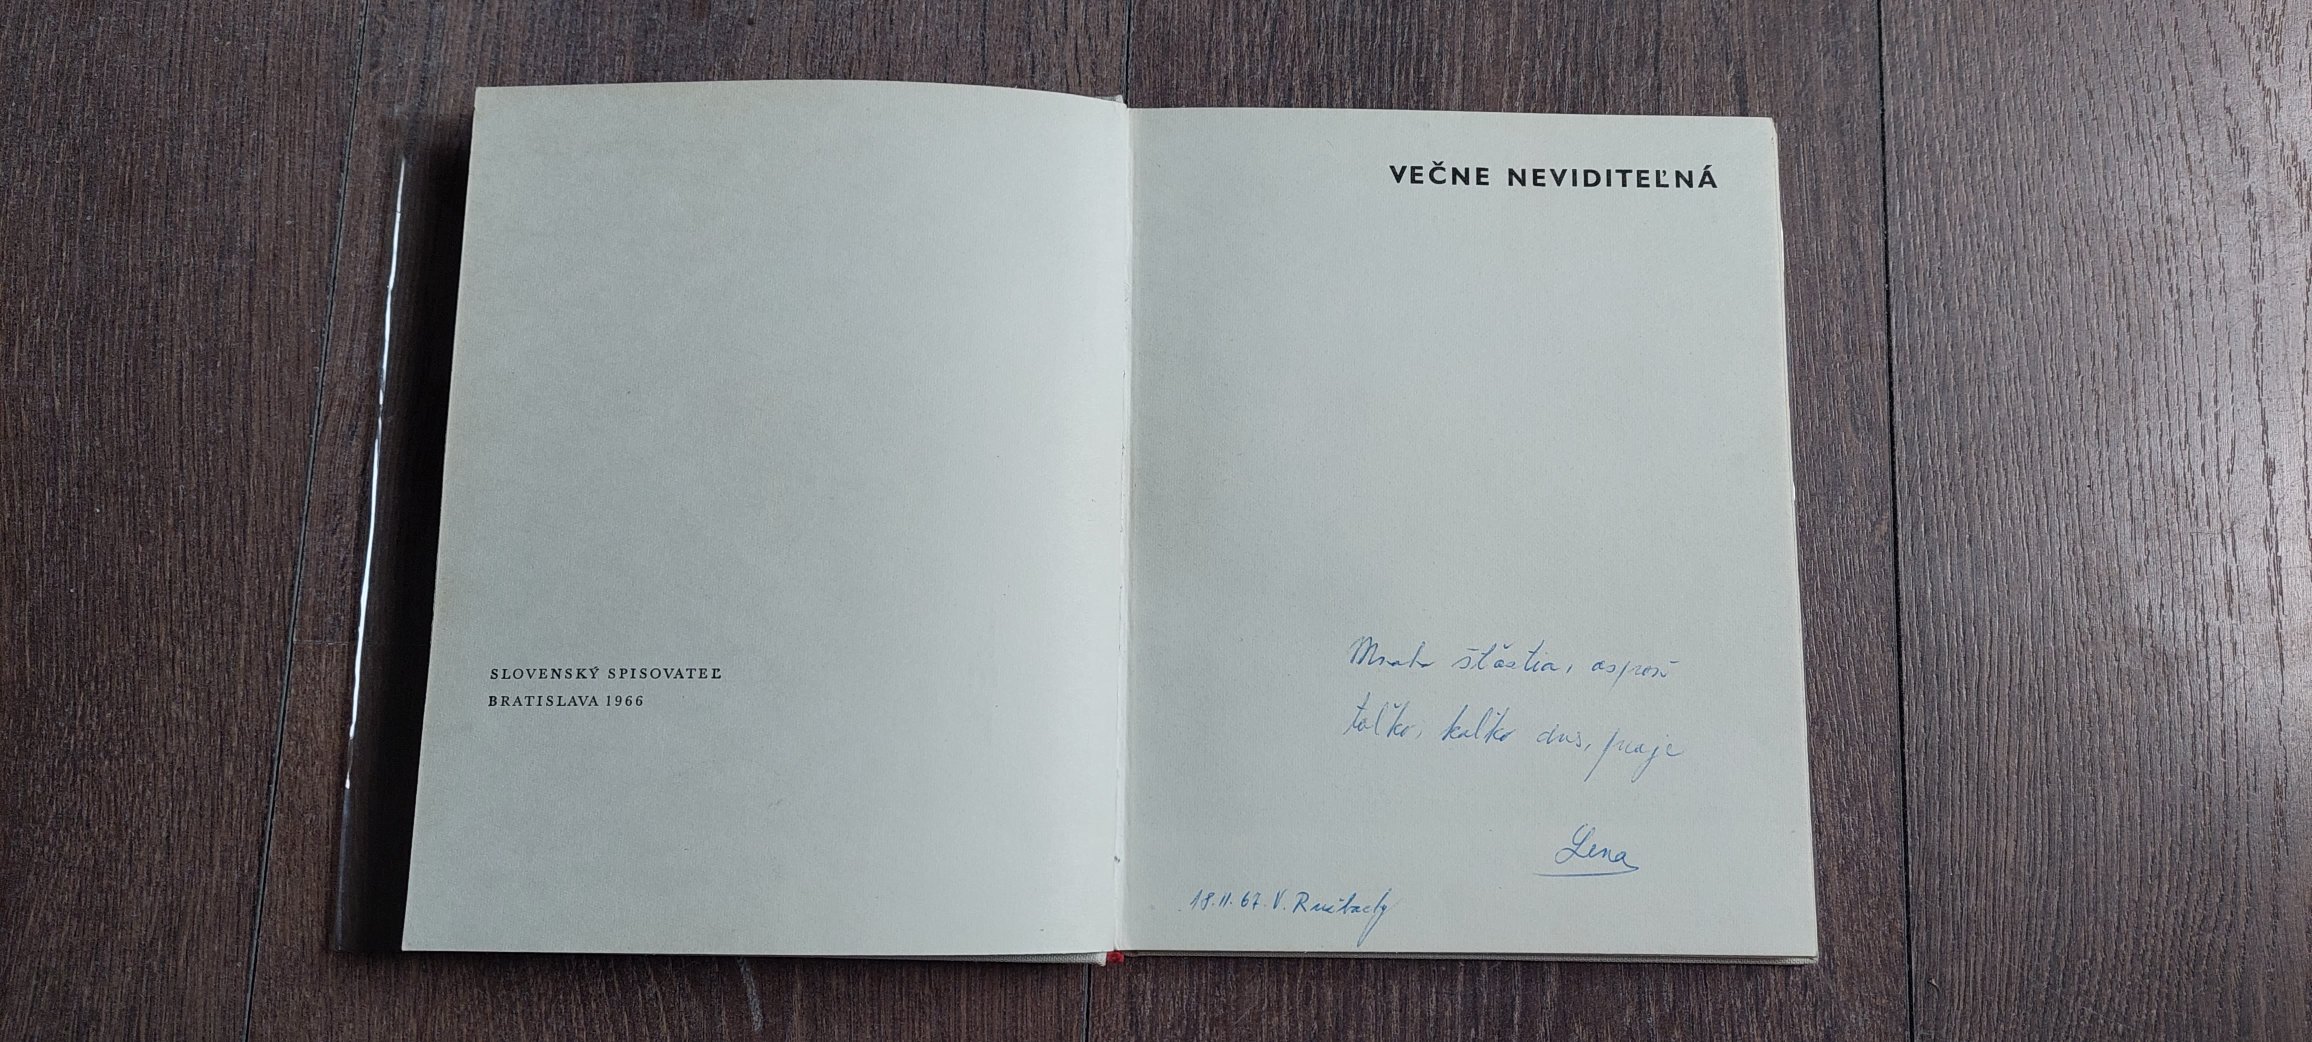 SLOVENSKÝ SPISOVATEĽ
BRATISLAVA 1966
VEČNE NEVIDITEĽNÁ
Mnoho šťastia, aspoň
toľko, koľko dnes, praje
Lena
18.II.67. V. Ružbachy